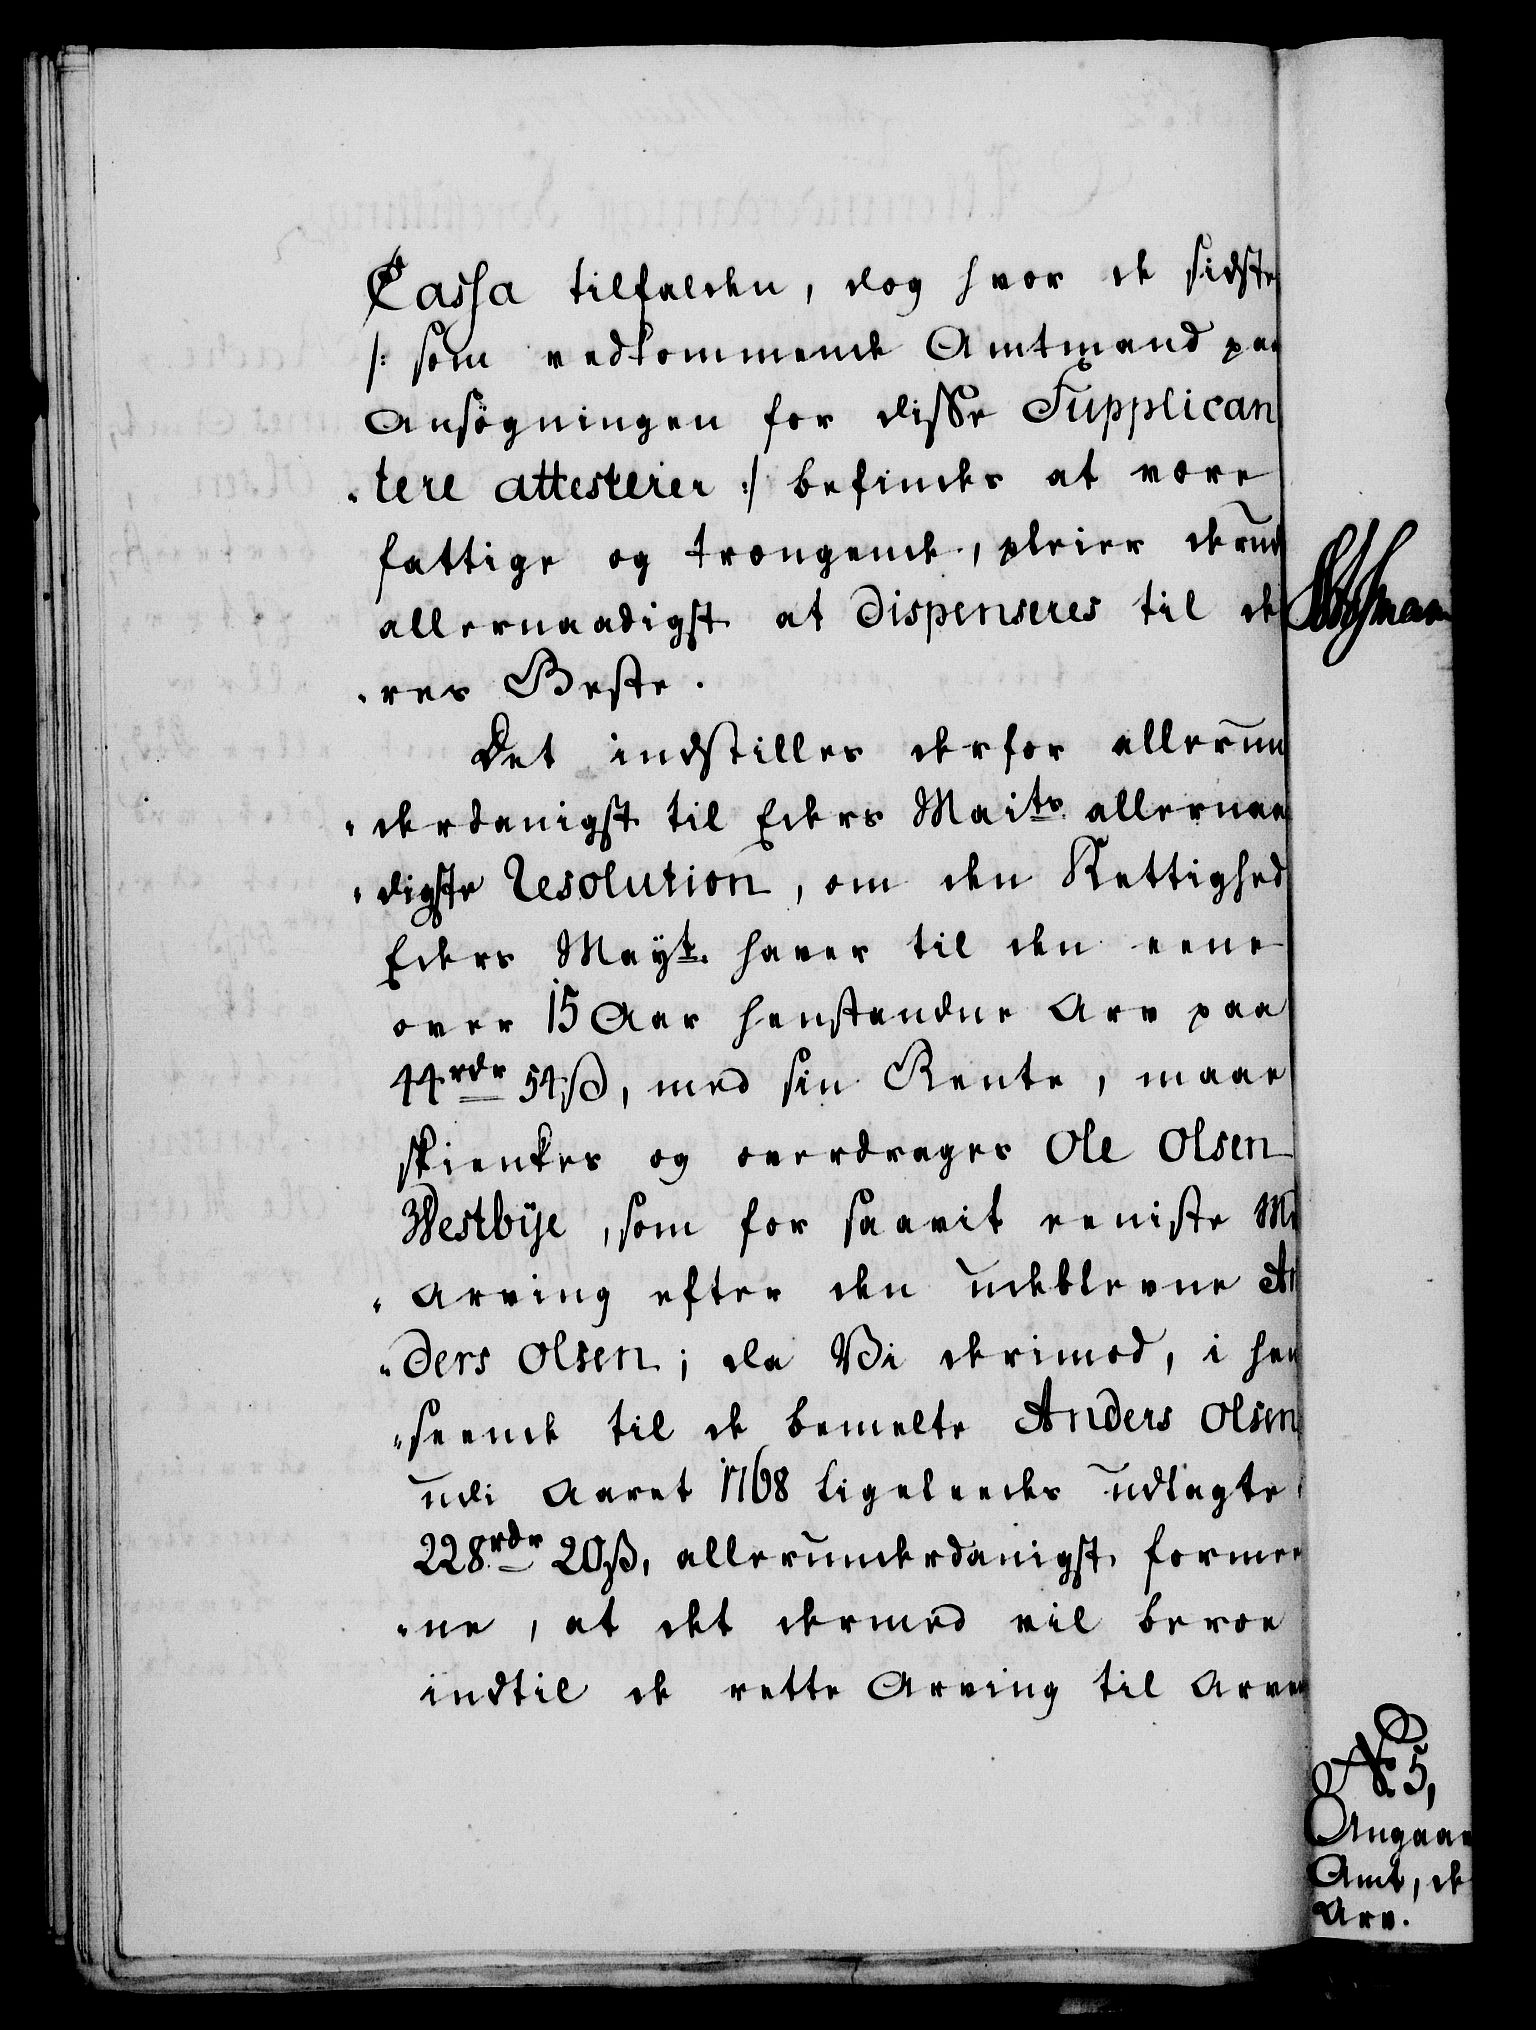 Cassa tilfalden, dog hvor de sidste
/: som vedkommende Amtmand paa
Ansøgningen for disse Supplican
"tere attesterer :/ befindes at være
fattige og trængende, pleier derud
allernaadigst at dispenseres til de
"res Beste.
Det indstilles derfor allerun
"derdanigst til Eders Maits allernaa
"digste Resolution, om den Rettighed
Eders Mayt. haver til den eene
over 15 Aar henstandne Arv paa
44rdr 54ß, med sin Rente, maae
skienkes og overdrages Ole Olsen
Westbÿe, som for saavit eeniste Med
"Arving efter den udeblevne An
"ders Olsen; da Vi derimod, i hen
"seende til de bemelte Anders Olsen
udi Aaret 1768 ligeleedes udlagte
228rdr 20ß, allerunderdanigst formee
"ne, at det dermed vil beroe
indtil de rette Arving til Arven
No. 5,
Angaae
Amt, de
Arv.